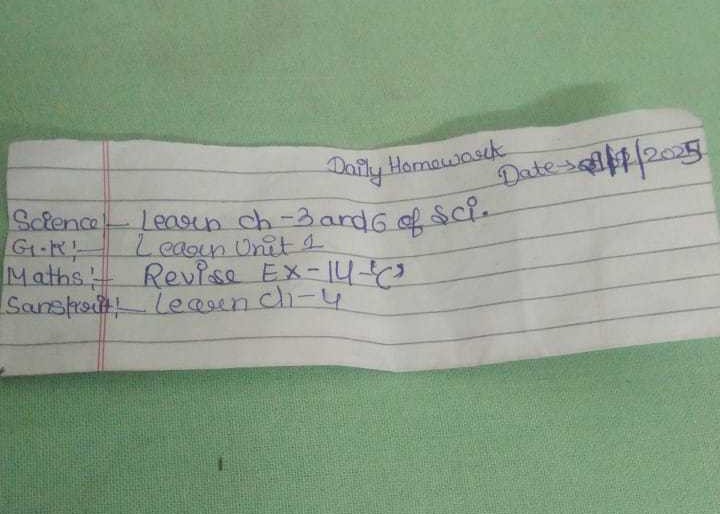 Daily Homework
Date→ /2025
Science:- Learn ch-3 and 6 of Sci.
G.K:- Learn Unit 1
Maths:- Revise Ex-14 "C"
Sanskrit:- Learn ch-4